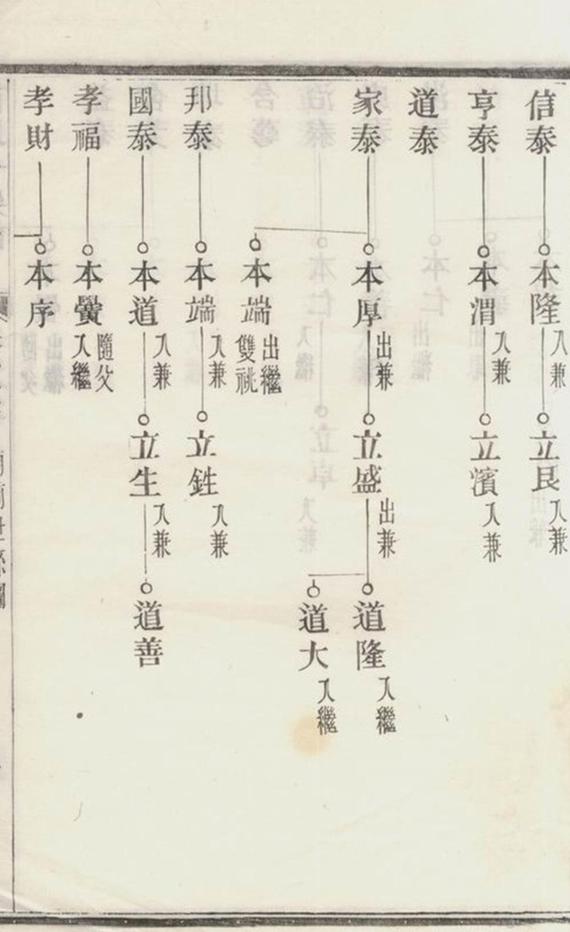 信泰
本隆 入兼
立艮 入兼
亨泰
本渭 入兼
立濱 入兼
道泰
家泰
本厚 出兼
立盛 出兼
道隆 入繼
道大 入繼
本端 出繼 雙祧
邦泰
本端 入兼
立鉎 入兼
國泰
本道 入兼
立生 入兼
道善
孝福
本黌 隨父 入繼
孝財
本序